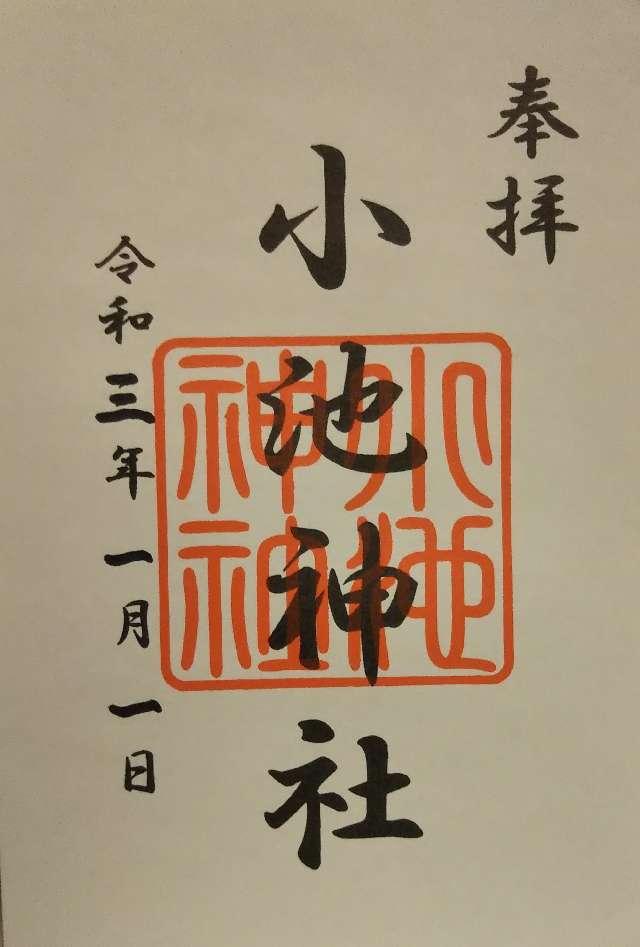 奉拝
小池神社
小池神社
令和三年一月一日